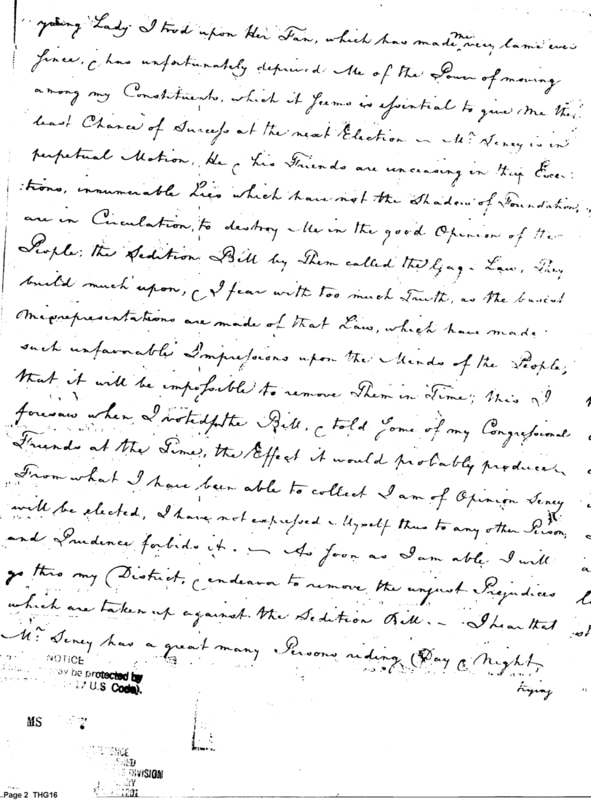 young Lady I trod upon Her Fan, which has made me very lame ever
since, & has unfortunately deprived Me of the Power of moving
among my Constituents, which it seems is essential to give Me the
least Chance of Success at the next Election — Mr. Seney is in
perpetual Motion, He & his Friends are unceasing in their Exer-
:tions, innumerable Lies which have not the Shadow of Foundation,
are in Circulation, to destroy Me in the good Opinion of the
People; the Sedition Bill by Them called the Gag-Law, They
build much upon, & I fear with too much Truth, as the basest
Misrepresentations are made of that Law, which have made
such unfavorable Impressions upon the Minds of the People,
that it will be impossible to remove Them in Time; this I
foresaw when I voted for the Bill, & told some of my Congressional
Friends at the Time, the Effect it would probably produce —
From what I have been able to collect I am of Opinion Seney
will be elected, I have not expressed Myself thus to any other Person,
and Prudence forbids it. — As soon as I am able I will
go thro my District, & endeavor to remove the unjust Prejudices
which are taken up against the Sedition Bill. — I hear that
Mr. Seney has a great many Persons riding Day & Night,
trying
NOTICE
may be protected by
17 U.S Code).
MS
DIVISION
Page 2 THG16